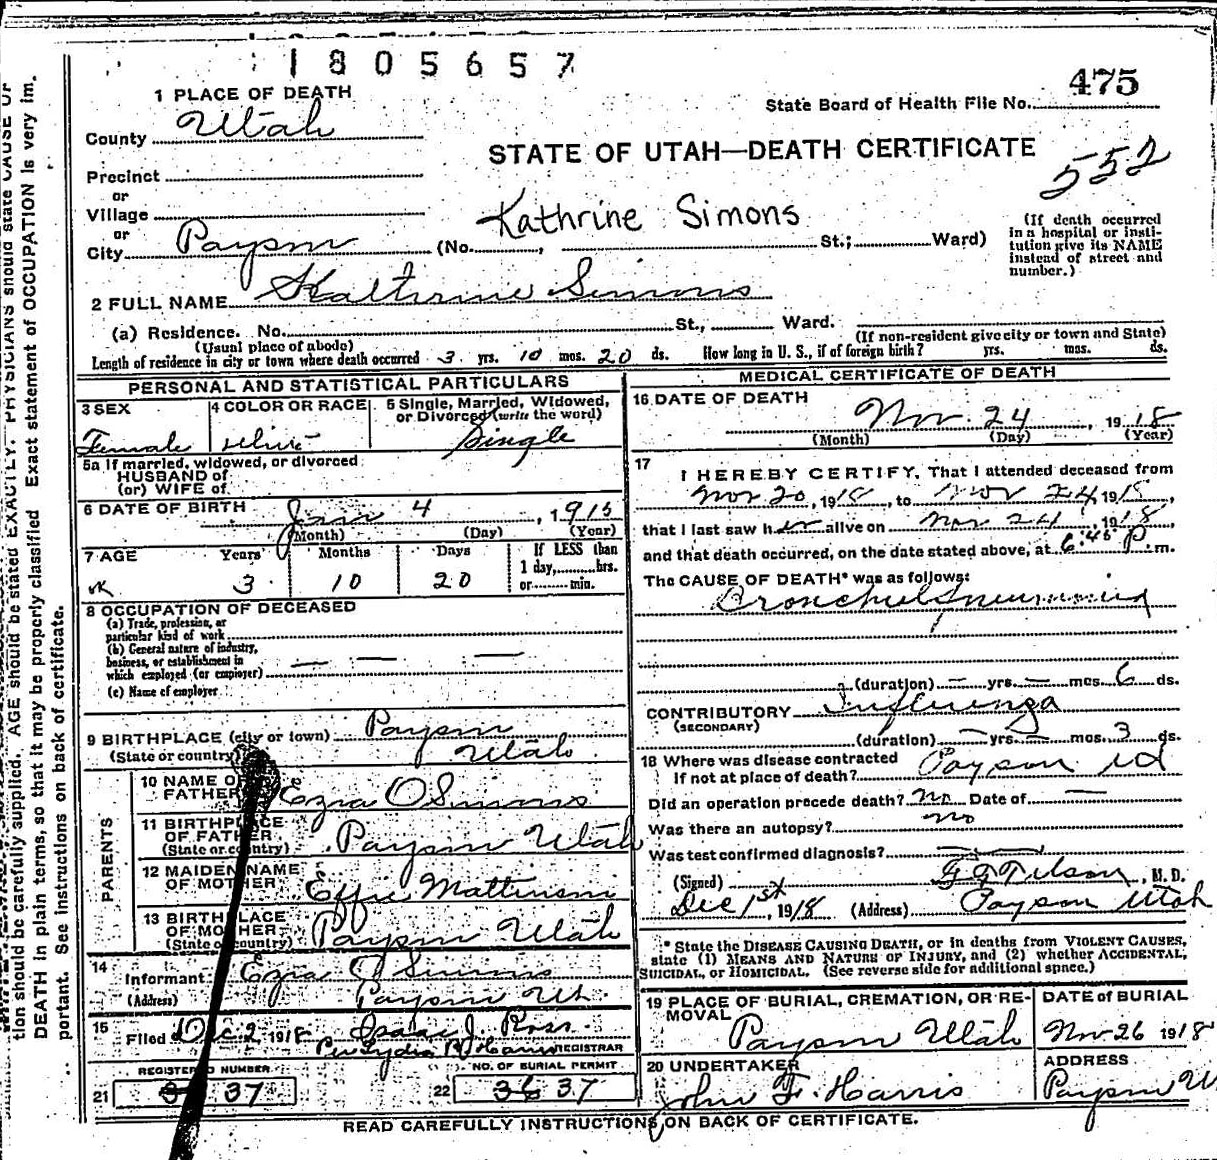 1805657
475
State Board of Health File No.
552
1 PLACE OF DEATH
County Utah
STATE OF UTAH—DEATH CERTIFICATE
Precinct
or
Village
or
City Payson (No. , St.; Ward)
Kathrine Simons
(If death occurred
in a hospital or insti-
tution give its NAME
instead of street and
number.)
2 FULL NAME Kathrine Simons
(a) Residence. No. St., Ward.
(Usual place of abode) (If non-resident give city or town and State)
Length of residence in city or town where death occurred 3 yrs. 10 mos. 20 ds. How long in U. S., if of foreign birth? yrs. mos. ds.
PERSONAL AND STATISTICAL PARTICULARS
3 SEX 4 COLOR OR RACE 5 Single, Married, Widowed,
or Divorced (write the word)
Female white Single
5a If married, widowed, or divorced
HUSBAND of
(or) WIFE of
6 DATE OF BIRTH Jan 4, 1915
(Month) (Day) (Year)
7 AGE Years Months Days If LESS than
1 day, hrs.
3 10 20 or min.
8 OCCUPATION OF DECEASED
(a) Trade, profession, or
particular kind of work
(b) General nature of industry,
business, or establishment in
which employed (or employer) — — —
(c) Name of employer
9 BIRTHPLACE (city or town) Payson
(State or country) Utah
PARENTS
10 NAME OF
FATHER Ezra O Simons
11 BIRTHPLACE
OF FATHER
(State or country) Payson Utah
12 MAIDEN NAME
OF MOTHER Effie Mattinson
13 BIRTHPLACE
OF MOTHER
(State or country) Payson Utah
14
Informant Ezra O Simons
(Address) Payson Ut.
15
Filed Dec 2 1918 Isaac J. Ross
Per Lydia R Harris REGISTRAR
REGISTERED NUMBER NO. OF BURIAL PERMIT
21 37 22 37
MEDICAL CERTIFICATE OF DEATH
16 DATE OF DEATH
Nov. 24, 1918
(Month) (Day) (Year)
17
I HEREBY CERTIFY, That I attended deceased from
Nov 20, 1918, to Nov 24, 1918,
that I last saw her alive on Nov 24, 1918,
and that death occurred, on the date stated above, at 6:45 P.m.
The CAUSE OF DEATH* was as follows:
Bronchial Pneumonia
(duration) — yrs. — mos. 6 ds.
CONTRIBUTORY Influenza
(SECONDARY)
(duration) — yrs. — mos. 3 ds.
18 Where was disease contracted
If not at place of death? Payson
Did an operation precede death? no Date of —
Was there an autopsy? no
Was test confirmed diagnosis? —
(Signed) , M. D.
Dec 1st, 1918 (Address) Payson Utah
* State the DISEASE CAUSING DEATH, or in deaths from VIOLENT CAUSES,
state (1) MEANS AND NATURE OF INJURY, and (2) whether ACCIDENTAL,
SUICIDAL, or HOMICIDAL. (See reverse side for additional space.)
19 PLACE OF BURIAL, CREMATION, OR RE-
MOVAL DATE of BURIAL
Payson Utah Nov 26 1918
20 UNDERTAKER ADDRESS
John F. Harris Payson U
READ CAREFULLY INSTRUCTIONS ON BACK OF CERTIFICATE.
tion should be carefully supplied. AGE should be stated EXACTLY. PHYSICIANS should state CAUSE OF
DEATH in plain terms, so that it may be properly classified. Exact statement of OCCUPATION is very im-
portant. See instructions on back of certificate.